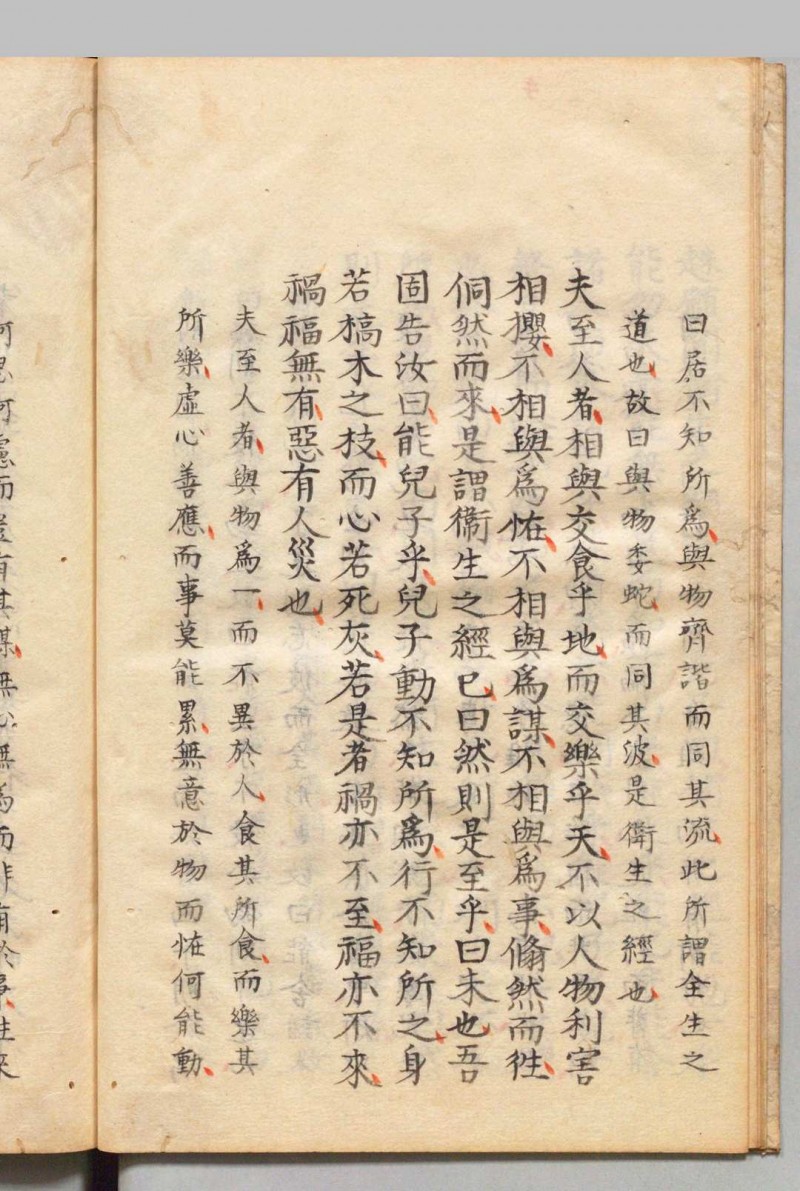 曰居不知所爲與物齊諧而同其流此所謂全生之
道也故曰與物委蛇而同其波是衛生之經也
夫至人者相與交食乎地而交樂乎天不以人物利害
相攖不相與爲恠不相與爲謀不相與爲事翛然而徃
侗然而來是謂衛生之經已曰然則是至乎曰未也吾
固告汝曰能兒子乎兒子動不知所爲行不知所之身
若槁木之枝而心若死灰若是者禍亦不至福亦不來
禍福無有惡有人災也
夫至人者與物爲一而不異於人食其所食而樂其
所樂虛心善應而事莫能累無意於物而恠何能動
何思何慮而豈有其謀無心無爲而非有於事往來